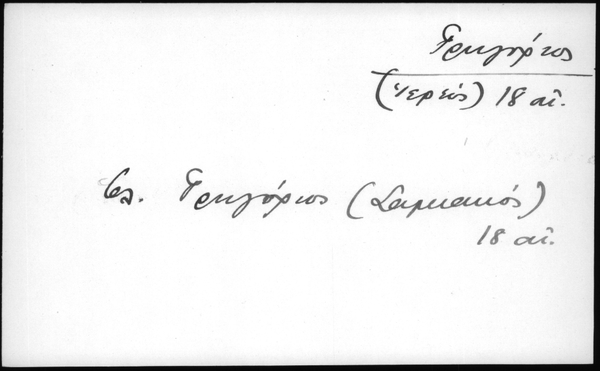 Γρηγόριος
(ἱερεύς) 18 αἰ.
βλ. Γρηγόριος (Σαμιακός)
18 αἰ.